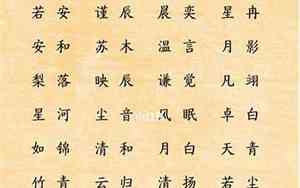 若安 谨辰 晨奕 星冉
安和 苏木 温言 月影
梨落 映辰 谦觉 凡翊
星河 尘音 风眠 卓白
如锦 清和 月明 天青
竹青 云归 清扬 若尘